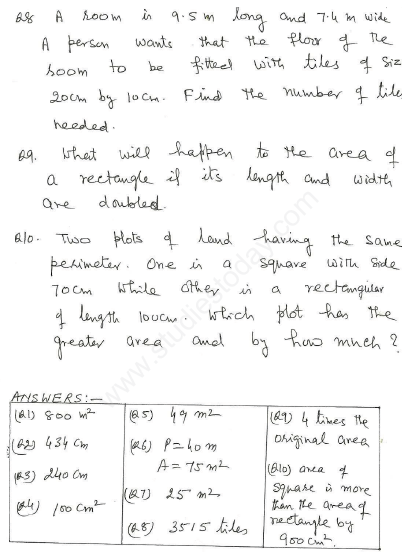 Q8 A room is 9.5 m long and 7.4 m wide
A person wants that the floor of the
room to be fitted with tiles of siz
20cm by 10cm. Find the number of tile
needed.
Q9. What will happen to the area of
a rectangle if its length and width
are doubled.
Q10. Two plots of land having the same
perimeter. One is a square with side
70cm while other is a rectangular
of length 100cm. Which plot has the
greater area and by how much?
www.studiestoday.com
ANSWERS:-
(Q1) 800 m²
(Q2) 434 cm
(Q3) 240 cm
(Q4) 100 cm²
(Q5) 49 m²
(Q6) P = 40 m
A = 75 m²
(Q7) 25 m²
(Q8) 3515 tiles
(Q9) 4 times the
original area
(Q10) area of
square is more
than the area of
rectangle by
900 cm².